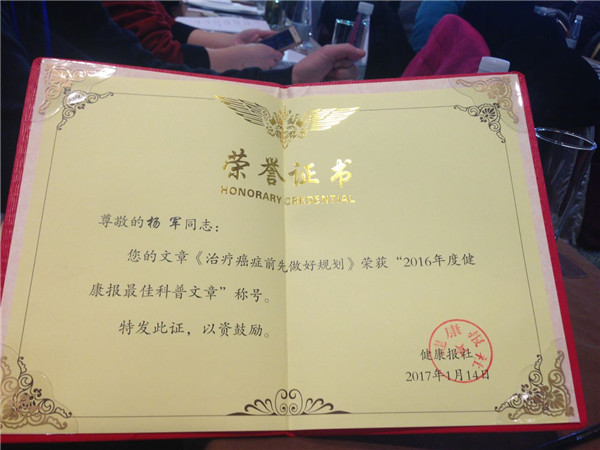 荣誉证书
HONORARY CREDENTIAL
尊敬的杨 军同志：
您的文章《治疗癌症前先做好规划》荣获“2016年度健
康报最佳科普文章”称号。
特发此证，以资鼓励。
健康报社
健康报社
2017年1月14日